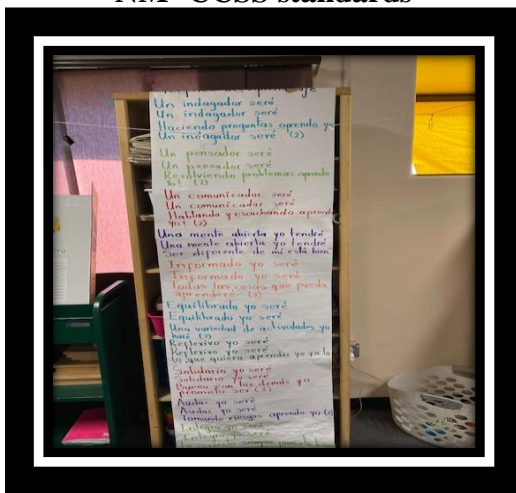 NM CCSS standards
Un indagador seré
Un indagador seré
Haciendo preguntas aprendo yo
Un indagador seré (2)
Un pensador seré
Un pensador seré
Resolviendo problemas aprendo
yo! (2)
Un comunicador seré
Un comunicador seré
Hablando y escuchando aprendo
yo! (2)
Una mente abierta yo tendré
Una mente abierta yo tendré
Ser diferente de mi está bien
Informado yo seré
Informado yo seré
Todas las cosas que pueda
aprenderé. (2)
Equilibrado yo seré
Equilibrado yo seré
Una variedad de actividades yo
haré (2)
Reflexivo yo seré
Reflexivo yo seré
lo que quiera aprender yo ya lo
Solidario yo seré
Solidario yo seré
Bueno con los demás yo
prometo ser (2)
Audaz yo seré
Audaz yo seré
Tomando riesgos aprendo yo (2)
Integro yo seré
Integro yo seré